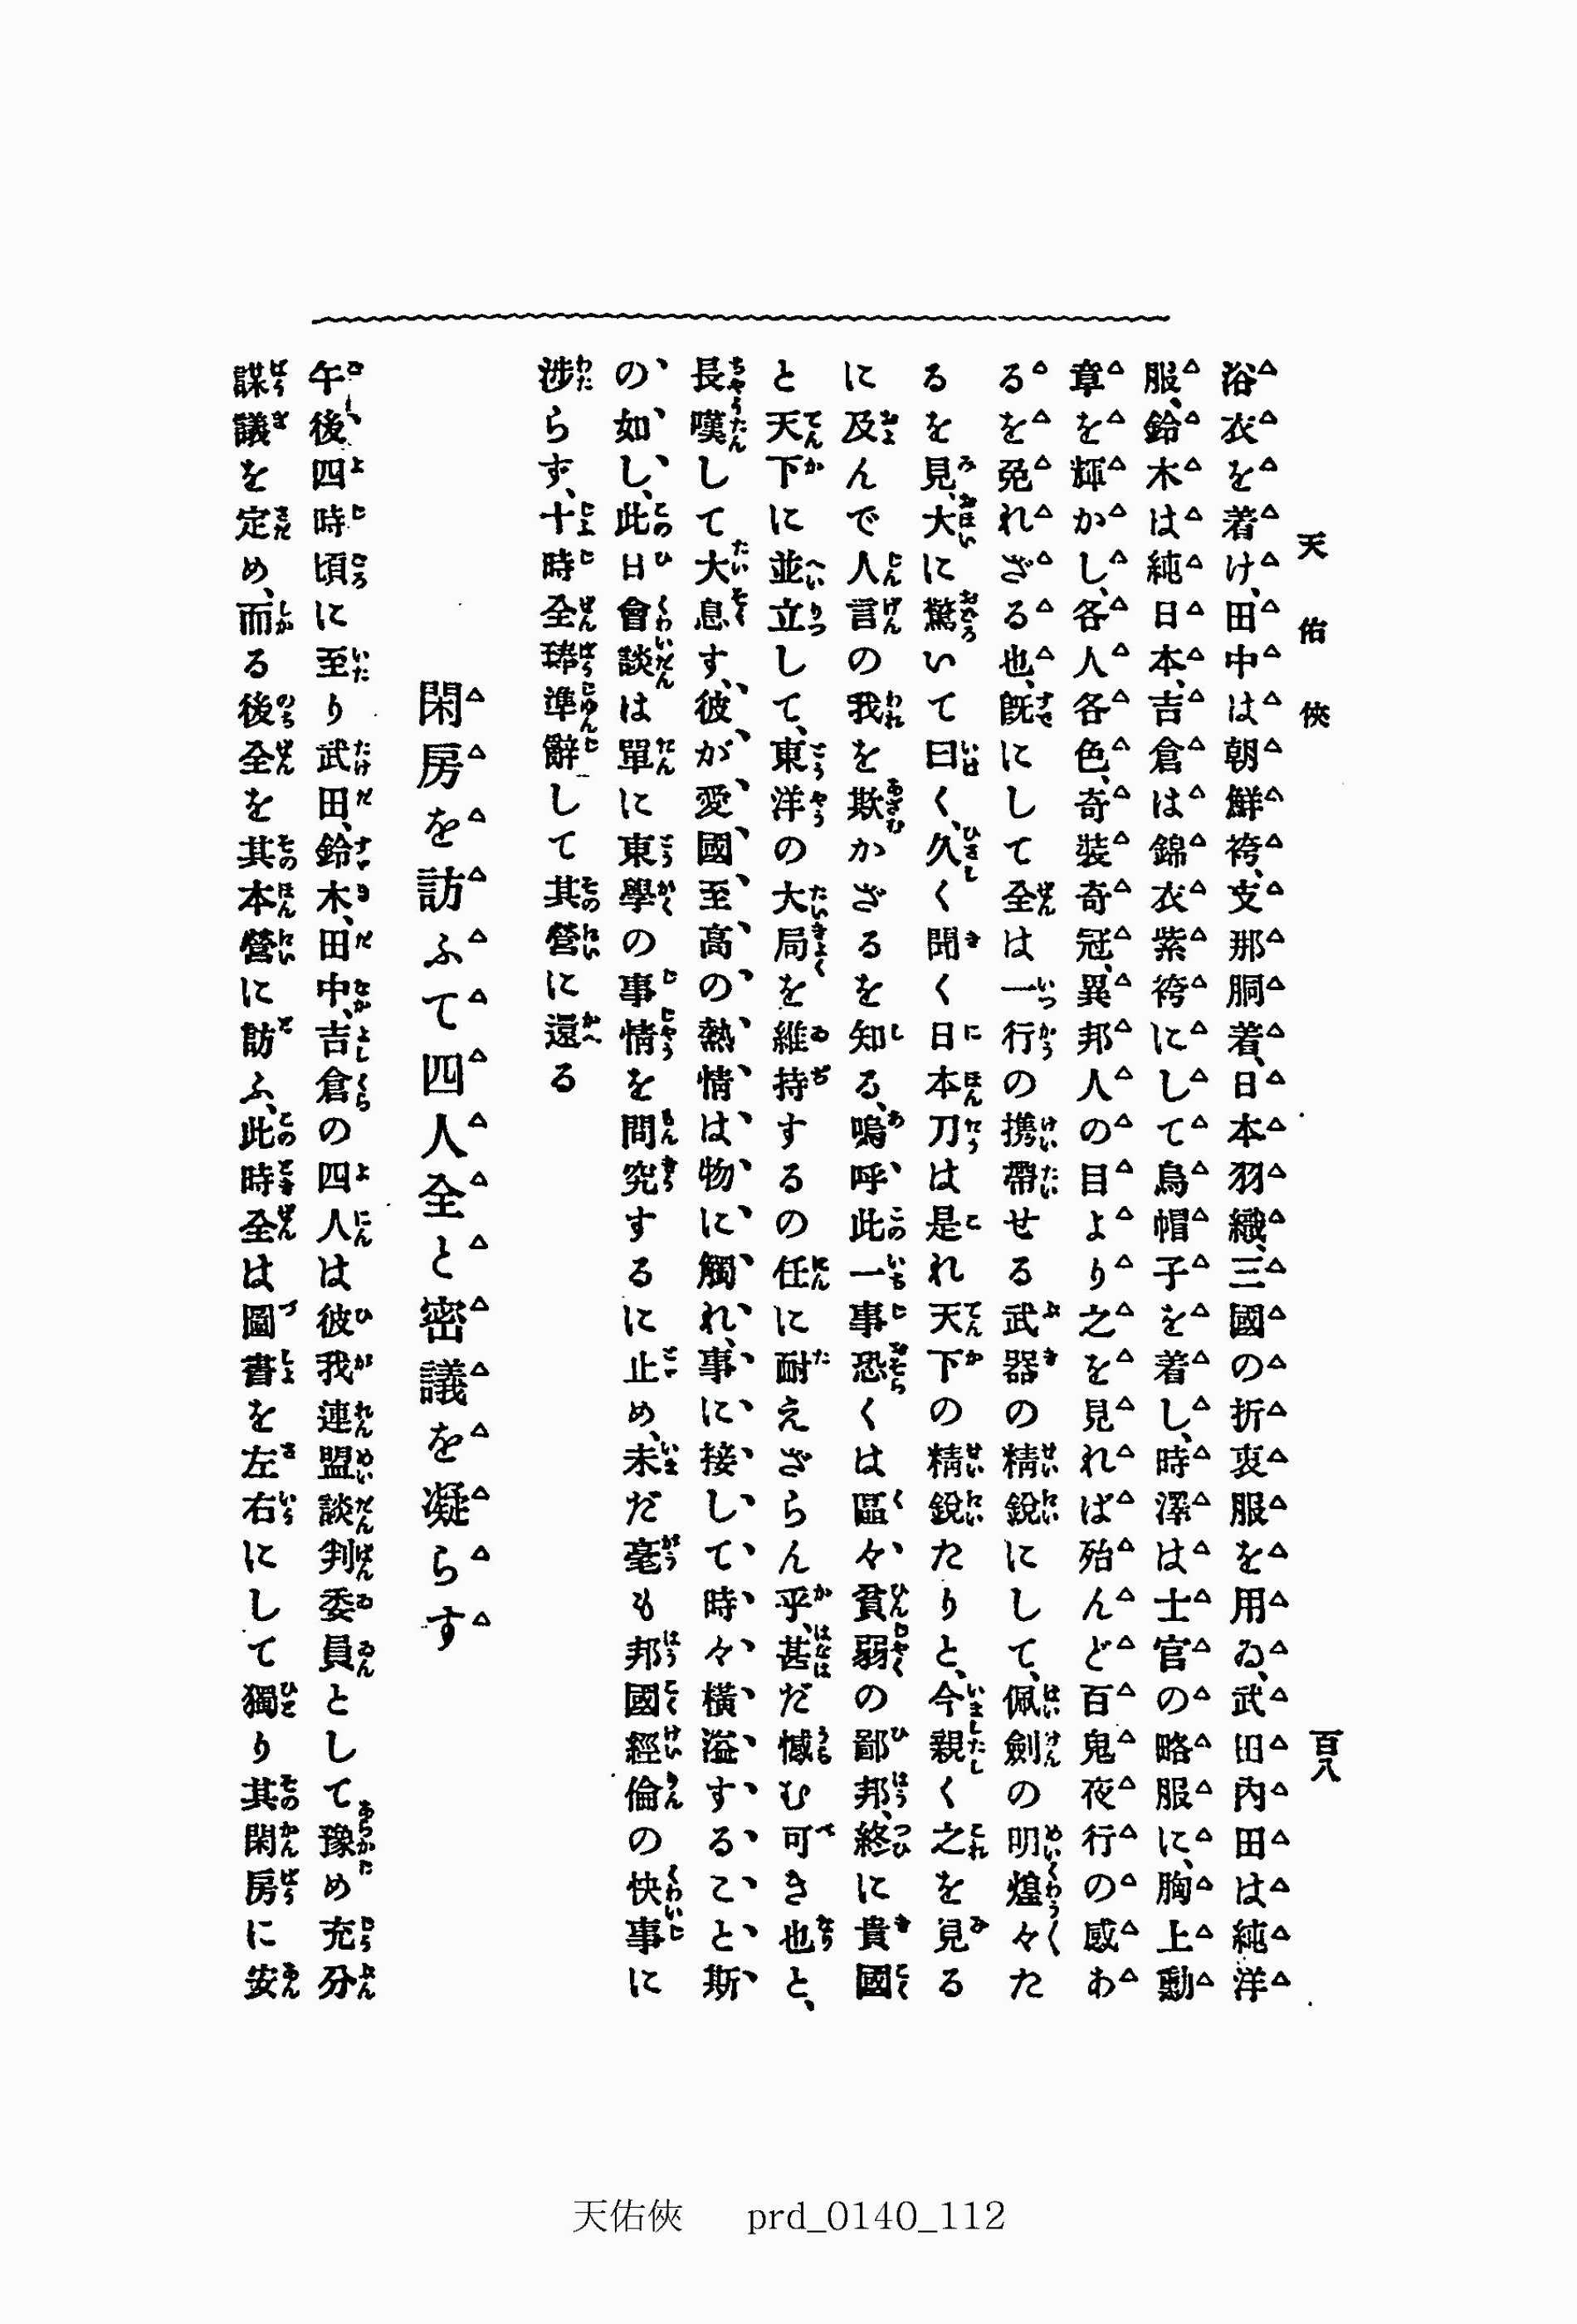 天佑俠
百八
浴衣を着け、田中は朝鮮袴、支那胴着、日本羽織、三國の折衷服を用ゐ、武田内田は純洋
服、鈴木は純日本、吉倉は錦衣紫袴にして烏帽子を着し、時澤は士官の略服に、胸上勳
章を輝かし、各人各色、奇裝奇冠、異邦人の目より之を見れば殆んど百鬼夜行の感あ
るを免れざる也、既にして全は一行の携帶せる武器の精銳にして、佩劍の明煌々た
るを見、大に驚いて曰く、久く聞く日本刀は是れ天下の精銳たりと、今親く之を見る
に及んで人言の我を欺かざるを知る、嗚呼此一事恐くは區々貧弱の鄙邦、終に貴國
と天下に並立して、東洋の大局を維持するの任に耐えざらん乎、甚だ憾む可き也と、
長嘆して大息す、彼が愛國至高の熱情は、物に觸れ、事に接して、時々橫溢すること斯
の如し、此日會談は單に東學の事情を問究するに止め、未だ毫も邦國經倫の快事に
涉らず、十時全琫準辭して其營に還る
閑房を訪ふて四人全と密議を凝らす
午後四時頃に至り武田、鈴木、田中、吉倉の四人は彼我連盟談判委員として豫め充分
謀議を定め、而る後全を其本營に訪ふ、此時全は圖書を左右にして獨り其閑房に安
天佑俠 prd_0140_112